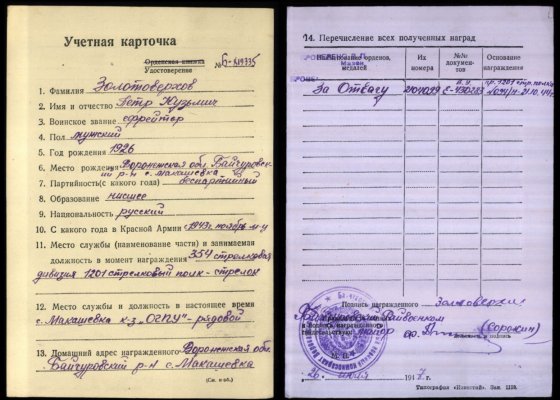 Учетная карточка
Орденская книжка № Б-419335
Удостоверение
1. Фамилия Золотоверхов
2. Имя и отчество Петр Кузьмич
3. Воинское звание ефрейтор
4. Пол мужский
5. Год рождения 1926
6. Место рождения Воронежская обл. Байчуровс-
кий р-н с. Макашевка
7. Партийность (с какого года) беспартийный
8. Образование низшее
9. Национальность русский
10. С какого года в Красной Армии с 1943 г. ноябрь м-ц
11. Место службы (наименование части) и занимаемая
должность в момент награждения 354 стрелковая
дивизия 1201 стрелковый полк - стрелок
12. Место службы и должность в настоящее время
с. Макашевка к-з "ОГПУ" - рядовой
13. Домашний адрес награжденного Воронежская обл.
Байчуровский р-н с. Макашевка
(См. н об.)
14. Перечисление всех полученных наград
Наименование орденов, медалей
Их номера
№№ документов
Основание награждения
За Отвагу
Подпись награжденного
Байчуровский Райвоенком
и подпись награжденного
свидетельствую: майор
(Сорокин)
М. П.
Должность и подпись
26 1947 г.
Типография «Известий». Зак.